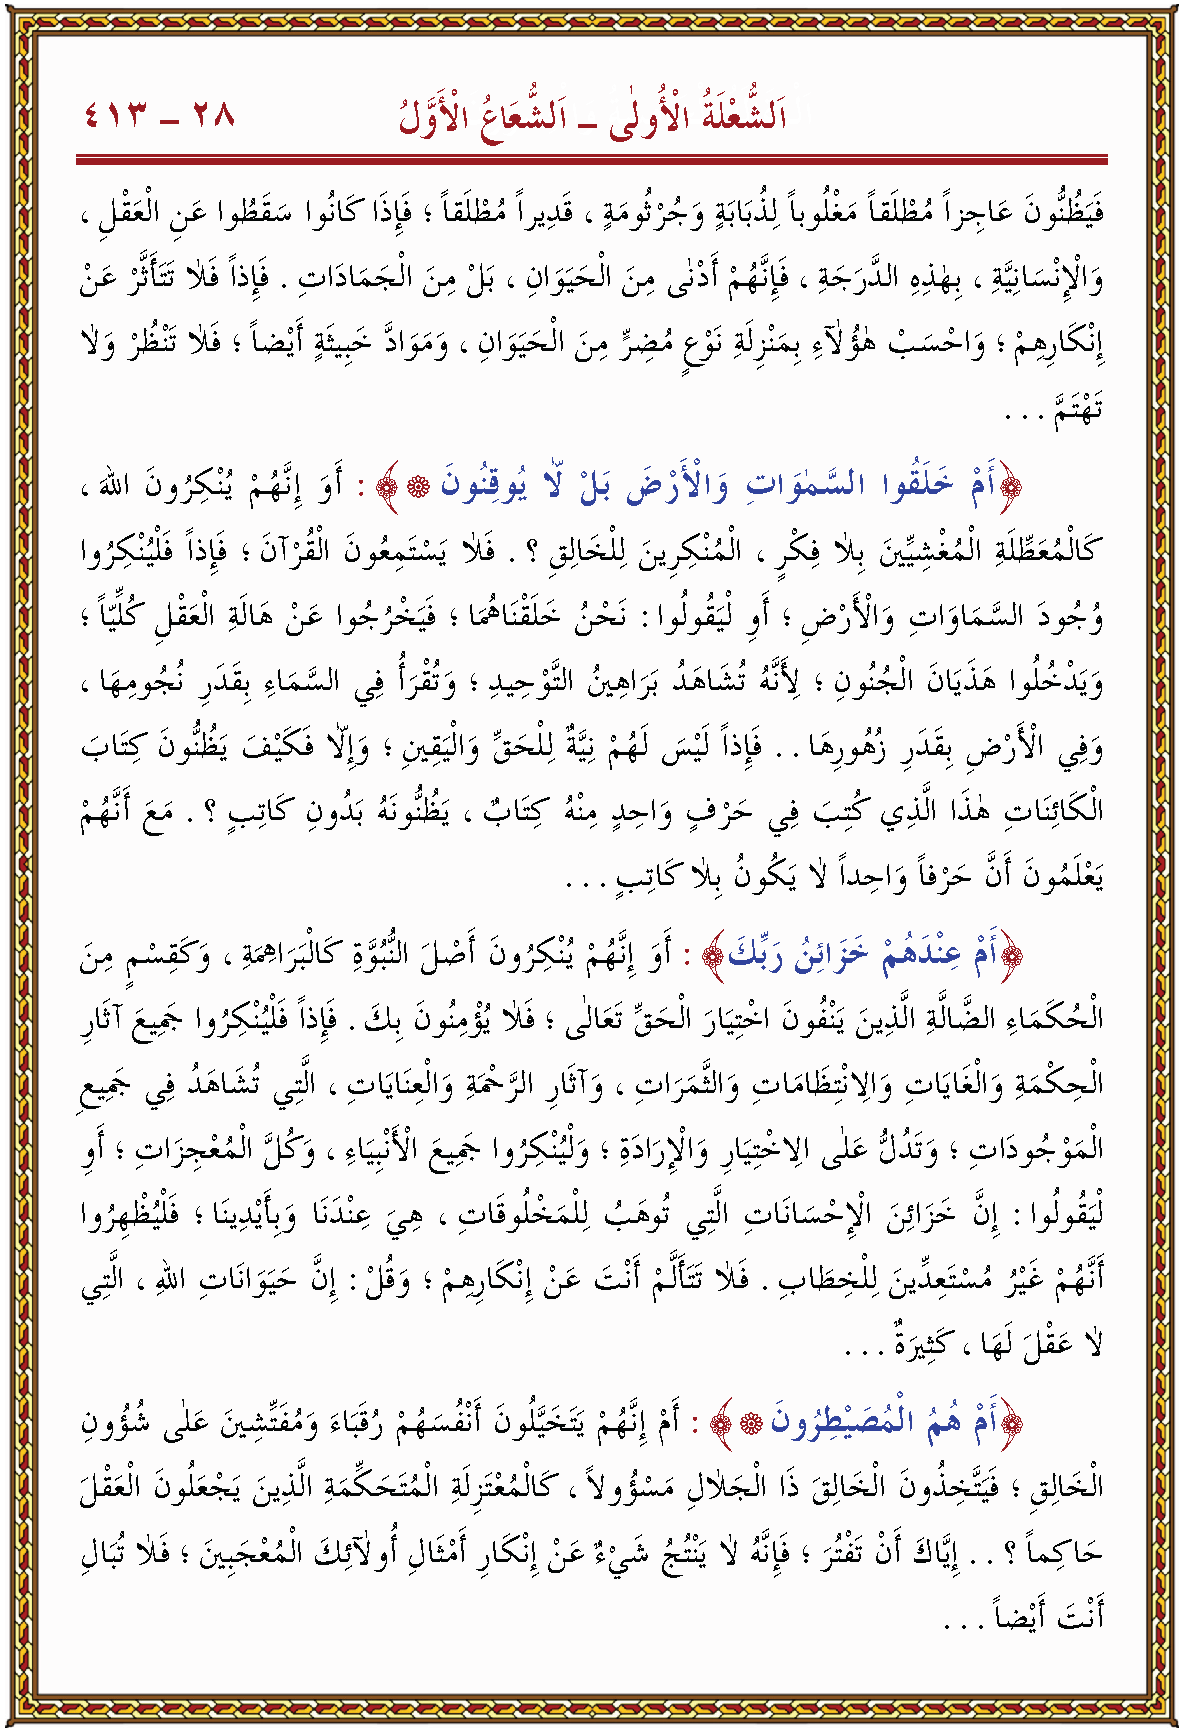 اَلشُّعْلَةُ الْأُولٰى – اَلشُّعَاعُ الْأَوَّلُ ٢٨ – ٤١٣
فَيَظُنُّونَ عَاجِزاً مُطْلَقاً مَغْلُوباً لِذُبَابَةٍ وَجُرْثُومَةٍ ، قَدِيراً مُطْلَقاً ؛ فَإِذَا كَانُوا سَقَطُوا عَنِ الْعَقْلِ ،
وَالْإِنْسَانِيَّةِ ، بِهٰذِهِ الدَّرَجَةِ ، فَإِنَّهُمْ أَدْنٰى مِنَ الْحَيَوَانِ ، بَلْ مِنَ الْجَمَادَاتِ . فَإِذاً فَلَا تَتَأَثَّرْ عَنْ
إِنْكَارِهِمْ ؛ وَاحْسَبْ هٰؤُلَآءِ بِمَنْزِلَةِ نَوْعٍ مُضِرٍّ مِنَ الْحَيَوَانِ ، وَمَوَادَّ خَبِيثَةٍ أَيْضاً ؛ فَلَا تَنْظُرْ وَلَا
تَهْتَمَّ . . .
﴿أَمْ خَلَقُوا السَّمٰوَاتِ وَالْأَرْضَ بَلْ لَّا يُوقِنُونَ ۞﴾ : أَوَ إِنَّهُمْ يُنْكِرُونَ اللهَ ،
كَالْمُعَطِّلَةِ الْمُغْشِيِّينَ بِلَا فِكْرٍ ، الْمُنْكِرِينَ لِلْخَالِقِ ؟ . فَلَا يَسْتَمِعُونَ الْقُرْآنَ ؛ فَإِذاً فَلْيُنْكِرُوا
وُجُودَ السَّمَاوَاتِ وَالْأَرْضِ ؛ أَوِ لْيَقُولُوا : نَحْنُ خَلَقْنَاهُمَا ؛ فَيَخْرُجُوا عَنْ هَالَةِ الْعَقْلِ كُلِّيّاً ؛
وَيَدْخُلُوا هَذَيَانَ الْجُنُونِ ؛ لِأَنَّهُ تُشَاهَدُ بَرَاهِينُ التَّوْحِيدِ ؛ وَتُقْرَأُ فِي السَّمَاءِ بِقَدَرِ نُجُومِهَا ،
وَفِي الْأَرْضِ بِقَدَرِ زُهُورِهَا . . فَإِذاً لَيْسَ لَهُمْ نِيَّةٌ لِلْحَقِّ وَالْيَقِينِ ؛ وَإِلَّا فَكَيْفَ يَظُنُّونَ كِتَابَ
الْكَائِنَاتِ هٰذَا الَّذِي كُتِبَ فِي حَرْفٍ وَاحِدٍ مِنْهُ كِتَابٌ ، يَظُنُّونَهُ بَدُونِ كَاتِبٍ ؟ . مَعَ أَنَّهُمْ
يَعْلَمُونَ أَنَّ حَرْفاً وَاحِداً لَا يَكُونُ بِلَا كَاتِبٍ . . .
﴿أَمْ عِنْدَهُمْ خَزَائِنُ رَبِّكَ﴾ : أَوَ إِنَّهُمْ يُنْكِرُونَ أَصْلَ النُّبُوَّةِ كَالْبَرَاهِمَةِ ، وَكَقِسْمٍ مِنَ
الْحُكَمَاءِ الضَّالَّةِ الَّذِينَ يَنْفُونَ اخْتِيَارَ الْحَقِّ تَعَالٰى ؛ فَلَا يُؤْمِنُونَ بِكَ . فَإِذاً فَلْيُنْكِرُوا جَمِيعَ آثَارِ
الْحِكْمَةِ وَالْغَايَاتِ وَالِانْتِظَامَاتِ وَالثَّمَرَاتِ ، وَآثَارِ الرَّحْمَةِ وَالْعِنَايَاتِ ، الَّتِي تُشَاهَدُ فِي جَمِيعِ
الْمَوْجُودَاتِ ؛ وَتَدُلُّ عَلَى الِاخْتِيَارِ وَالْإِرَادَةِ ؛ وَلْيُنْكِرُوا جَمِيعَ الْأَنْبِيَاءِ ، وَكُلَّ الْمُعْجِزَاتِ ؛ أَوِ
لْيَقُولُوا : إِنَّ خَزَائِنَ الْإِحْسَانَاتِ الَّتِي تُوهَبُ لِلْمَخْلُوقَاتِ ، هِيَ عِنْدَنَا وَبِأَيْدِينَا ؛ فَلْيُظْهِرُوا
أَنَّهُمْ غَيْرُ مُسْتَعِدِّينَ لِلْخِطَابِ . فَلَا تَتَأَلَّمْ أَنْتَ عَنْ إِنْكَارِهِمْ ؛ وَقُلْ : إِنَّ حَيَوَانَاتِ اللهِ ، الَّتِي
لَا عَقْلَ لَهَا ، كَثِيرَةٌ . . .
﴿أَمْ هُمُ الْمُصَيْطِرُونَ ۞﴾ : أَمْ إِنَّهُمْ يَتَخَيَّلُونَ أَنْفُسَهُمْ رُقَبَاءَ وَمُفَتِّشِينَ عَلٰى شُؤُونِ
الْخَالِقِ ؛ فَيَتَّخِذُونَ الْخَالِقَ ذَا الْجَلَالِ مَسْؤُولاً ، كَالْمُعْتَزِلَةِ الْمُتَحَكِّمَةِ الَّذِينَ يَجْعَلُونَ الْعَقْلَ
حَاكِماً ؟ . . إِيَّاكَ أَنْ تَفْتُرَ ؛ فَإِنَّهُ لَا يَنْتُجُ شَيْءٌ عَنْ إِنْكَارِ أَمْثَالِ أُولٰئِكَ الْمُعْجَبِينَ ؛ فَلَا تُبَالِ
أَنْتَ أَيْضاً . . .